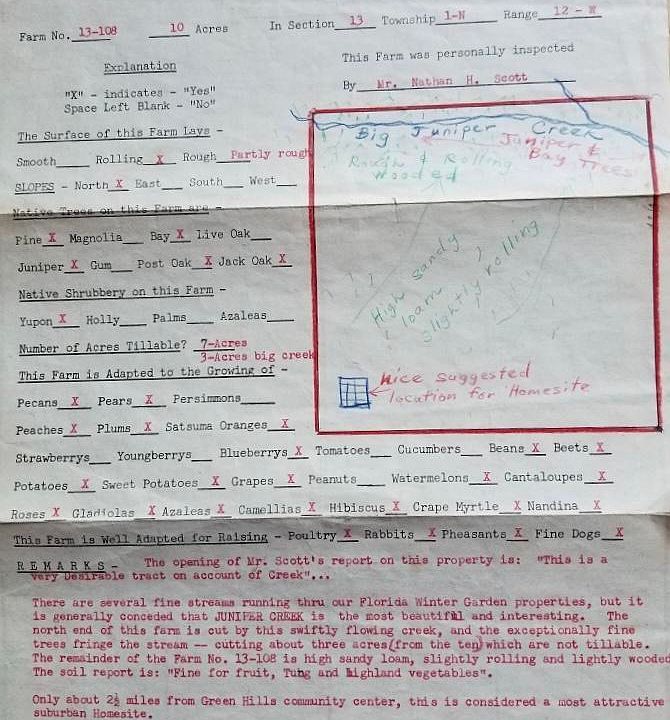 Farm No. 13-108 10 Acres In Section 13 Township 1-N Range 12 - W
This Farm was personally inspected
By Mr. Nathan H. Scott
Explanation
"X" - indicates - "Yes"
Space Left Blank - "No"
The Surface of this Farm Lays -
Smooth____ Rolling X Rough Partly rough
SLOPES - North X East____ South____ West___
Native Trees on this Farm are -
Pine X Magnolia____ Bay X Live Oak___
Juniper X Gum____ Post Oak X Jack Oak X
Native Shrubbery on this Farm -
Yupon X Holly____ Palms____ Azaleas____
Number of Acres Tillable? 7-Acres
3-Acres big creek
This Farm is Adapted to the Growing of -
Pecans X Pears X Persimmons____
Peaches X Plums X Satsuma Oranges X
Big Juniper Creek
Juniper &
Bay Trees
Rough & Rolling
Wooded
High sandy
loam
slightly rolling
Nice suggested
location for Homesite
Strawberrys___ Youngberrys____ Blueberrys X Tomatoes___ Cucumbers____ Beans X Beets X
Potatoes X Sweet Potatoes X Grapes X Peanuts____ Watermelons X Cantaloupes X
Roses X Gladiolas X Azaleas X Camellias X Hibiscus X Crape Myrtle X Nandina X
This Farm is Well Adapted for Raising - Poultry X Rabbits X Pheasants X Fine Dogs X
REMARKS - The opening of Mr. Scott's report on this property is: "This is a
very Desirable tract on account of Creek"...
There are several fine streams running thru our Florida Winter Garden properties, but it
is generally conceded that JUNIPER CREEK is the most beautiful and interesting. The
north end of this farm is cut by this swiftly flowing creek, and the exceptionally fine
trees fringe the stream -- cutting about three acres(from the ten)which are not tillable.
The remainder of the Farm No. 13-108 is high sandy loam, slightly rolling and lightly wooded
The soil report is: "Fine for fruit, Tung and highland vegetables".
Only about 2½ miles from Green Hills community center, this is considered a most attractive
suburban Homesite.